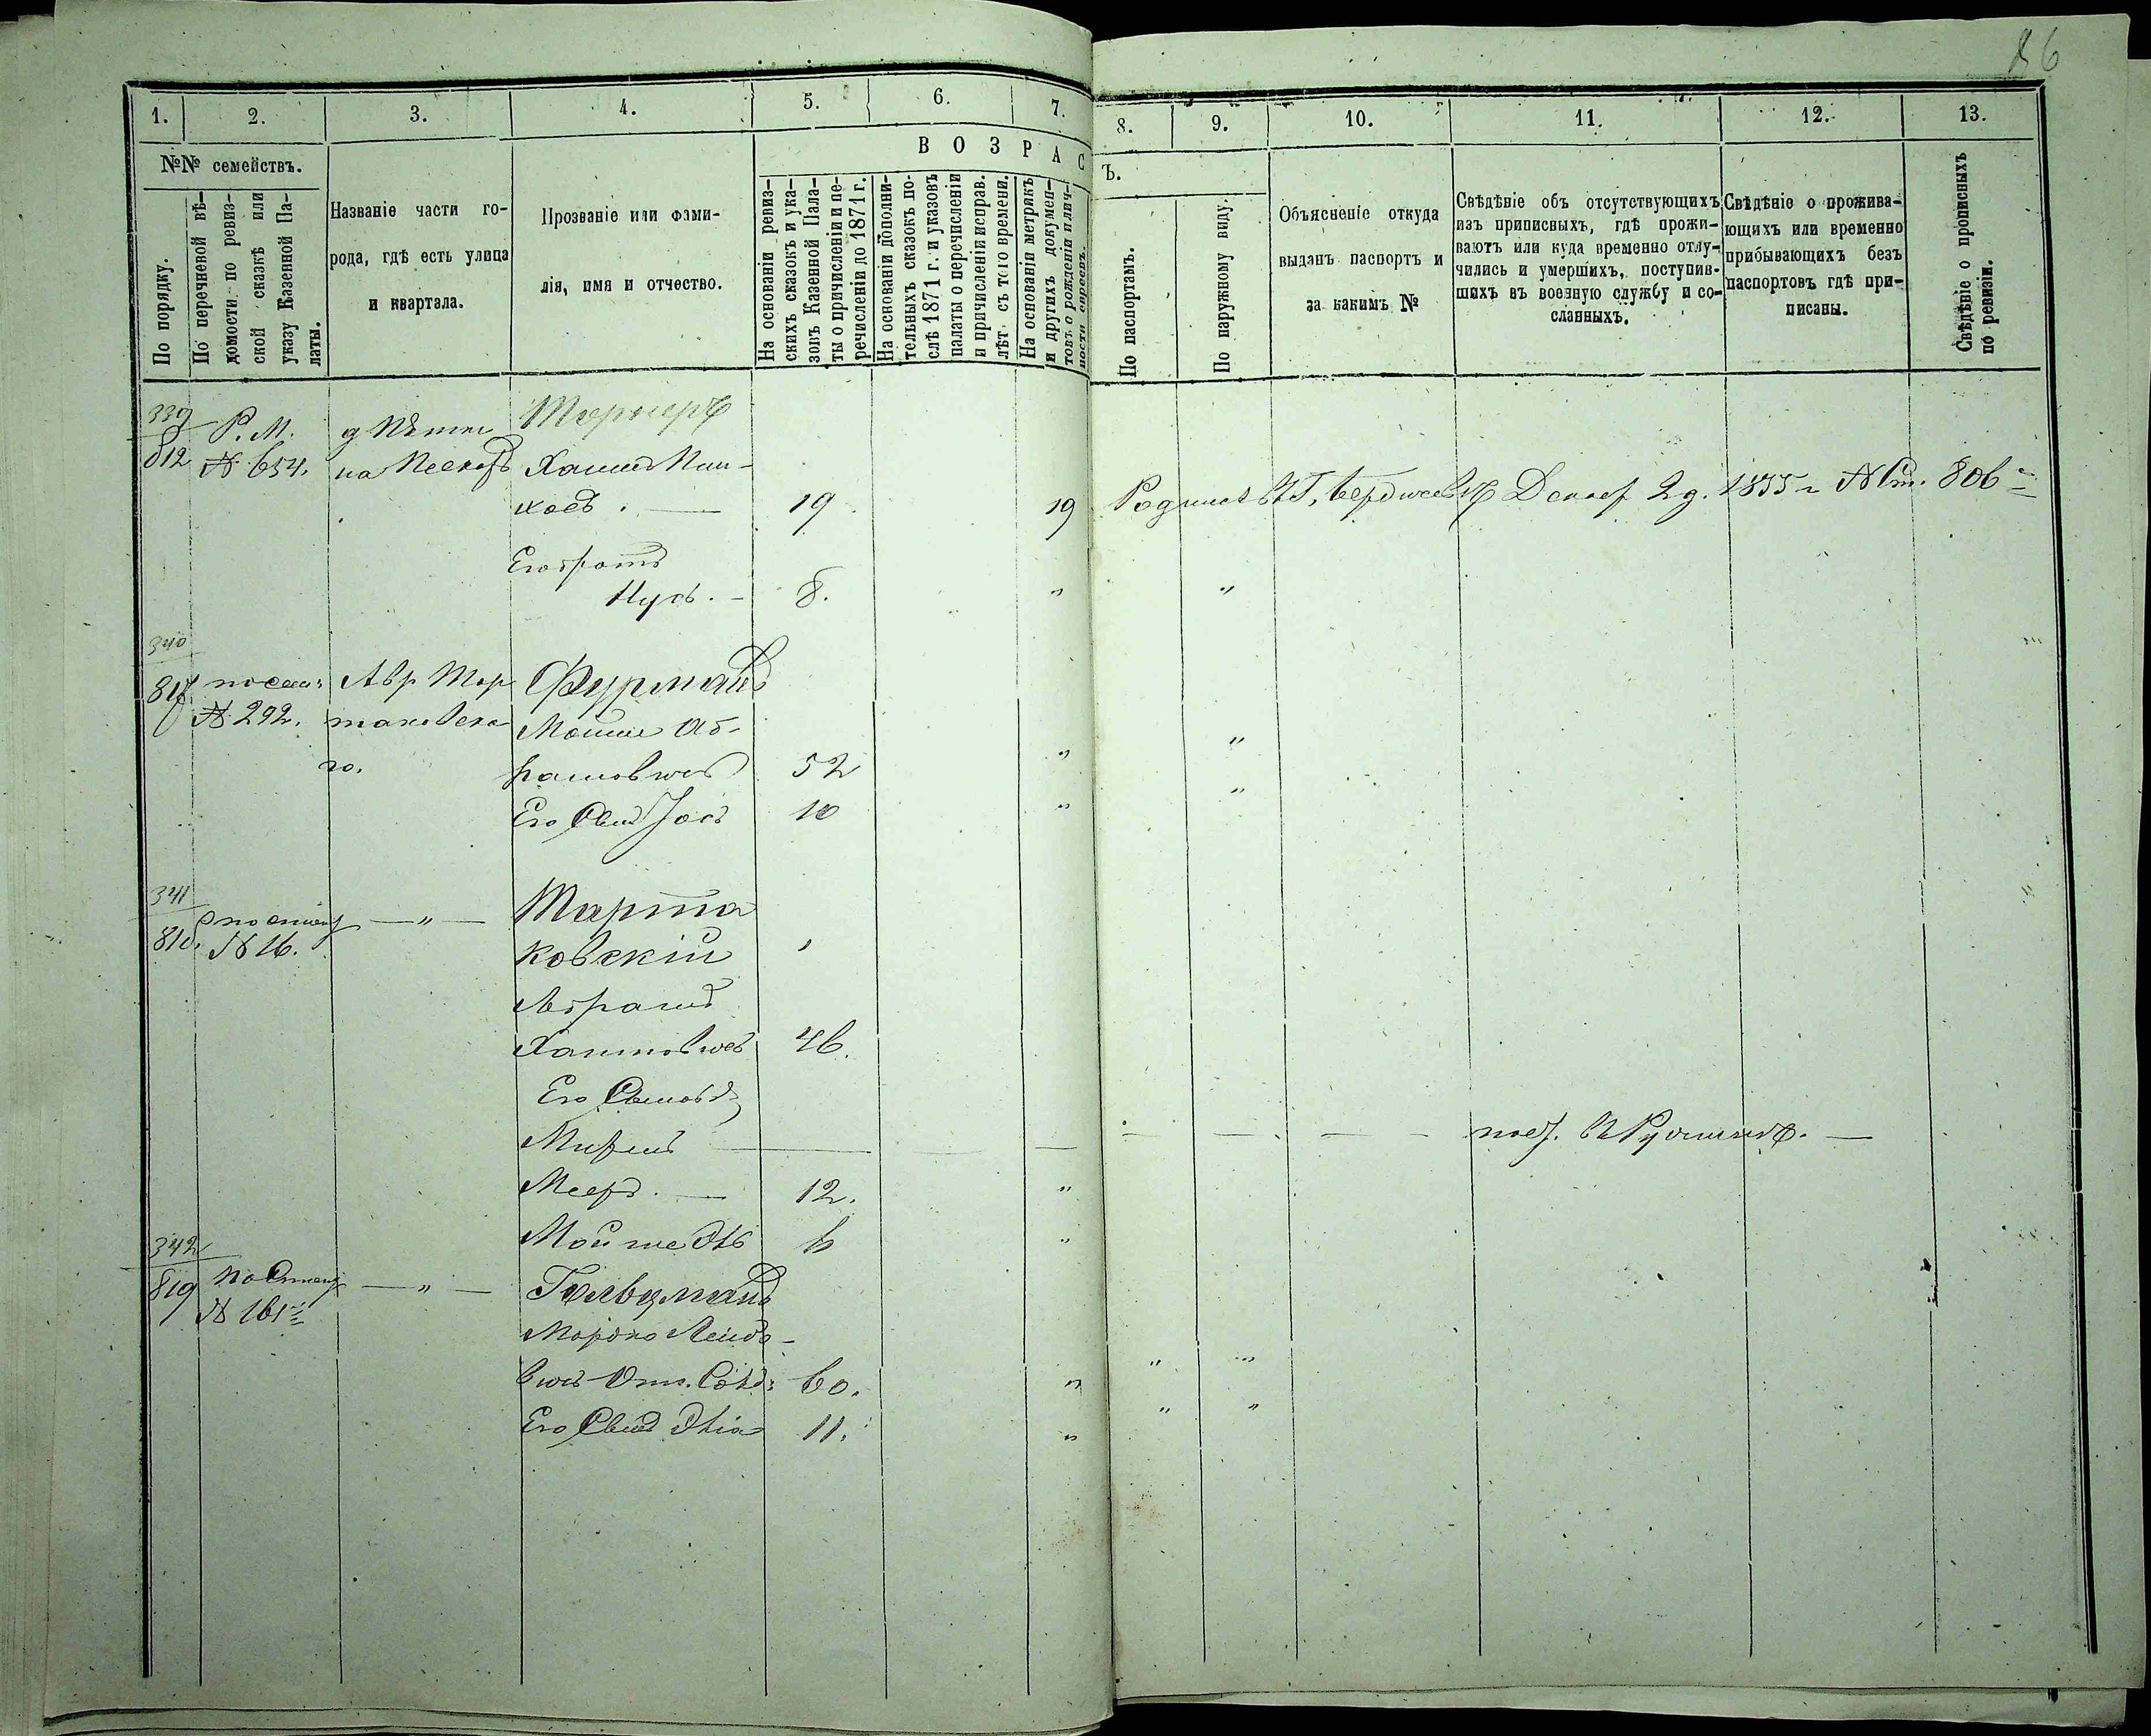 86
1. 2. 3. 4. 5. 6. 7. 8. 9. 10. 11. 12. 13.
№№ семействъ.
По порядку.
По перечневой вѣ-
домости по ревиз-
ской сказкѣ или
указу Казенной Па-
латы.
Названіе части го-
рода, гдѣ есть улица
и квартала.
Прозваніе или фами-
лія, имя и отчество.
ВОЗРАС
Ъ.
На основаніи ревиз-
скихъ сказокъ и ука-
зовъ Казенной Пала-
ты о причисленіи и пе-
речисленіи до 1871 г.
На основаніи дополни-
тельныхъ сказокъ по-
слѣ 1871 г. и указовъ
палаты о перечисленіи
и причисленіи исправ.
лѣт. съ того времени.
На основаніи метрикъ
и другихъ докумен-
товъ о рожденіи и лич-
ности евреевъ.
По паспортамъ.
По наружному виду.
Объясненіе откуда
выданъ паспортъ и
за какимъ №
Свѣдѣніе объ отсутствующихъ
изъ приписныхъ, гдѣ прожи-
ваютъ или куда временно отлу-
чились и умершихъ, поступив-
шихъ въ военную службу и со-
сланныхъ.
Свѣдѣніе о прожива-
ющихъ или временно
прибывающихъ безъ
паспортовъ гдѣ при-
писаны.
Свѣдѣніе о прописныхъ
по ревизіи.
339
812 Р. М.
№ 654.
на Пескахъ
Хаимъ Пин-
хосъ. — 19 19 Родился въ Г. Бердичевѣ Декаб 2 д. 1855 г. № Ст. 806
Его братъ
Нусъ. — 8. " "
340
817 № 292.
Авр Мар
таковска
го.
Фурманъ
Мошко Аб-
рамовичъ 52 " "
Его Сынъ Іосъ 10 " "
341
818. № 16. — " —
Марта
ковскій
Абрамъ
Хаимовичъ 46.
Его Сыновья
Мееръ. — 12. "
Мойше 6 "
342
819 № 161 — " —
Мордко Лейбо-
вичъ 60. " " "
Его Сынъ 11. " " "